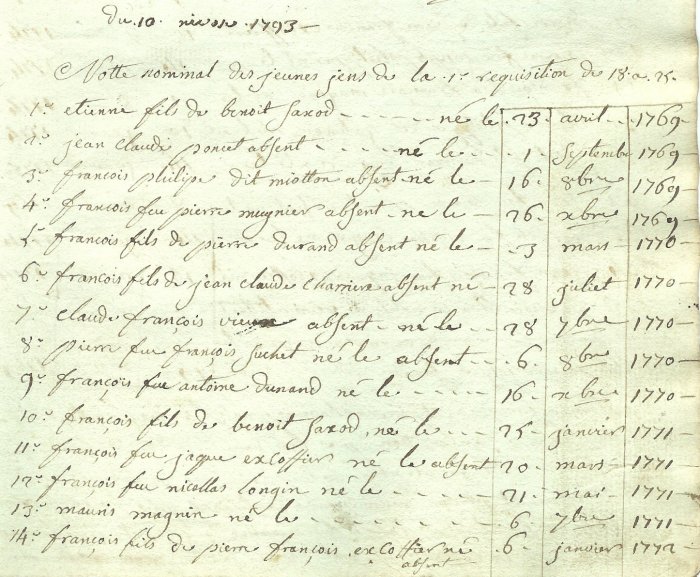 du 10 nivose 1793 -
Notte nominal des jeunes jens de la 1re requisition de 18 a 25
1re etienne fils de benoit saxod - - - - - né le 23 avril 1769
2e jean claude poncet absent - - - - né le - - 1 septembre 1769
3e françois philipe dit miotton absent né le - 16 8bre 1769
4e françois feu pierre mugnier absent - né le - 26 xbre 1769
5e françois fils de pierre durand absent né le - 3 mars 1770
6e françois fils de jean claude charriere absent né - 28 juliet 1770
7e claude françois absent - né le - 28 7bre 1770
8e pierre feu françois suchet né le absent - - 6 8bre 1770
9e françois feu antoine dunand né le - - - 16 xbre 1770
10e françois fils de benoit saxod, né le - - - 25 janvier 1771
11e françois feu jaque excoffier né le absent 20 mars 1771
12e françois feu nicollas longin né le - - - - 21 mai 1771
13e mauris magnin né le - - - - - - 6 7bre 1771
14e françois fils de pierre françois excoffier né 6 janvier 1772
absent